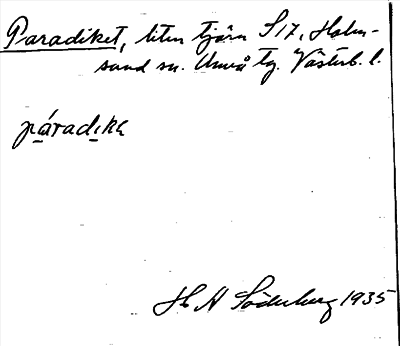 Paradiket, liten tjärn S17, Holm-
sund sn. Umeå tg. Västerb. l.
páradıka
H Söderberg 1935